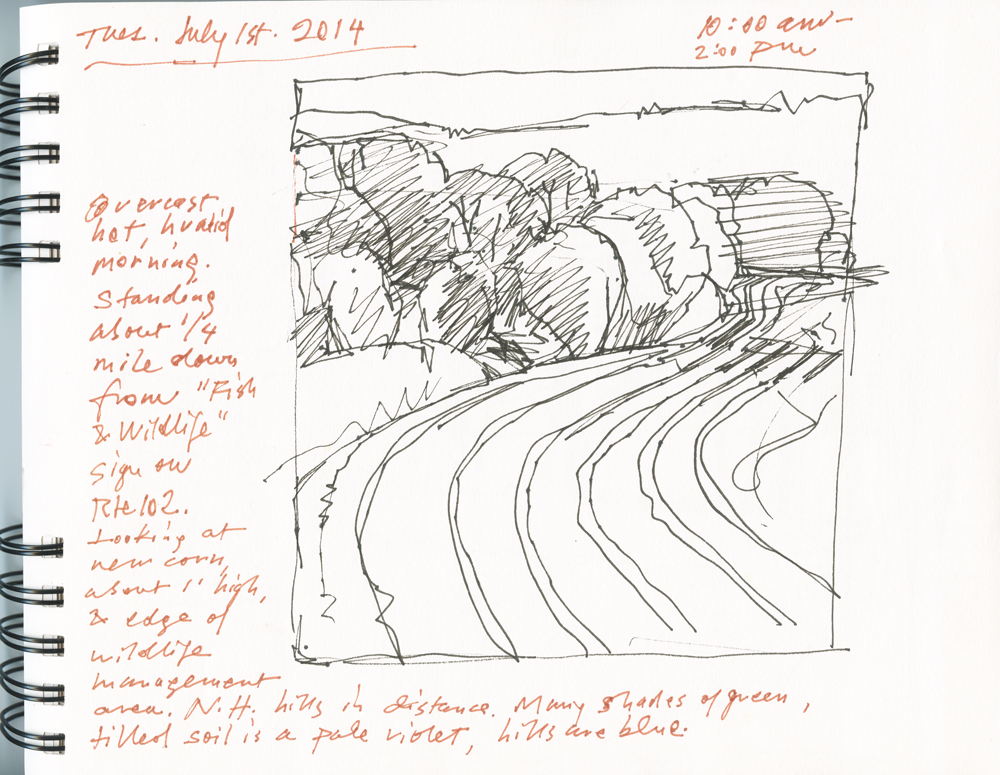 Tues. July 1st. 2014
10:00 am-
2:00 pm
Overcast,
hot, humid
morning.
Standing
about 1/4
mile down
from "Fish
& Wildlife"
sign on
Rte 102.
Looking at
new corn,
about 1' high,
& edge of
wildlife
management
area. N.H. hills in distance. Many shades of green,
tilled soil is a pale violet, hills are blue.